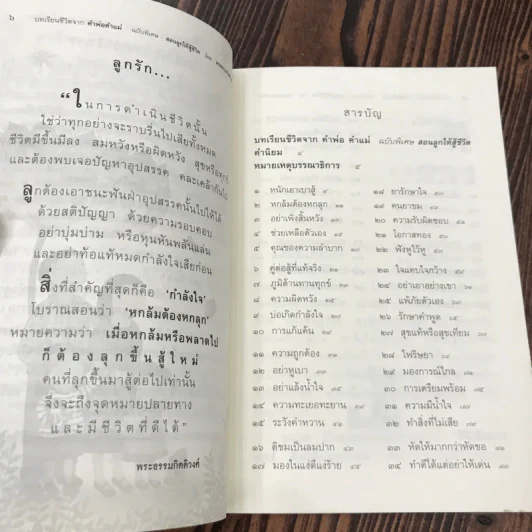 ๖ บทเรียนชีวิตจาก คำพ่อคำแม่ ฉบับพิเศษ สอนลูกให้สู้ชีวิต
ลูกรัก...
“ในการดำเนินชีวิตนั้น
ใช่ว่าทุกอย่างจะราบรื่นไปเสียทั้งหมด
ชีวิตมีขึ้นมีลง สมหวังหรือผิดหวัง สุขหรือทุกข์
และต้องพบเจอปัญหาอุปสรรค คละเคล้ากันไป
ลูกต้องเอาชนะฟันฝ่าอุปสรรคนั้นไปให้ได้
ด้วยสติปัญญา ด้วยความรอบคอบ
อย่าบุ่มบ่าม หรือหุนหันพลันแล่น
และอย่าท้อแท้หมดกำลังใจเสียก่อน
สิ่งที่สำคัญที่สุดก็คือ ‘กำลังใจ’
โบราณสอนว่า ‘หกล้มต้องหกลุก’
หมายความว่า เมื่อหกล้มหรือพลาดไป
ก็ต้องลุกขึ้นสู้ใหม่
คนที่ลุกขึ้นมาสู้ต่อไปเท่านั้น
จึงจะถึงจุดหมายปลายทาง
และมีชีวิตที่ดีได้”
พระธรรมกิตติวงศ์
สารบัญ
บทเรียนชีวิตจาก คำพ่อ คำแม่ ฉบับพิเศษ สอนลูกให้สู้ชีวิต
คำนิยม ๔
หมายเหตุบรรณาธิการ ๕
๑ หนักเอาเบาสู้ ๙
๒ หกล้มต้องหกลุก
๓ อย่าเพิ่งสิ้นหวัง
๔ ช่วยเหลือตัวเอง
๕ คุณของความลำบาก
๖ คู่ต่อสู้ที่แท้จริง
๗ ภูมิต้านทานทุกข์
๘ ความผิดหวัง
๙ บ่อเกิดกำลังใจ
๑๐ การแก้แค้น
๑๑ ความถูกต้อง
๑๒ อย่าหูเบา
๑๓ อย่าแล้งน้ำใจ
๑๔ ความทะเยอทะยาน
๑๕ ระวังคำหวาน
๑๖ ติชมเป็นลมปาก
๑๗ มองในแง่ดีแง่ร้าย
๑๘ ยารักษาใจ
๑๙ คนยาขม
๒๐ ความรับผิดชอบ
๒๑ โอกาสทอง
๒๒ ฟังหูไว้หู
๒๓ ใจแคบใจกว้าง
๒๔ อย่าเอาอย่างเขา
๒๕ แพ้ภัยตัวเอง
๒๖ รักษาคำพูด
๒๗ สุขแท้หรือสุขเทียม
๒๘ ไฟริษยา
๒๙ มองการณ์ไกล
๓๐ การเตรียมพร้อม
๓๑ ความมีน้ำใจ
๓๒ ทำสิ่งที่ไม่เสีย
๓๓ หัดให้มากกว่าหัดขอ
๓๔ ทำดีได้แต่อย่าให้เด่น